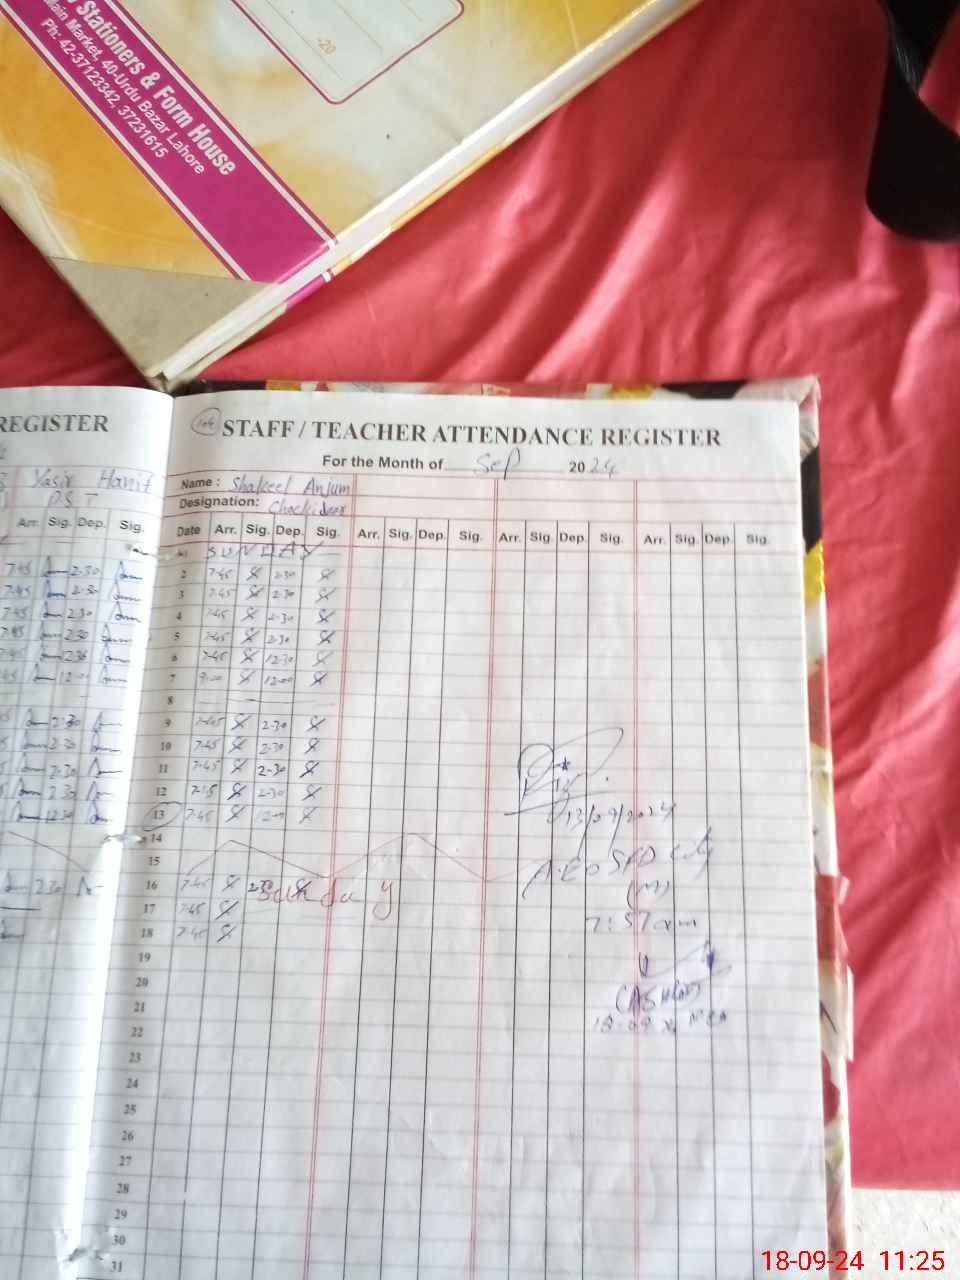 Stationers & Form House
Main Market, 40-Urdu Bazar Lahore
Ph: 42-37123342, 37231615
-20
REGISTER
Yasir Hanif
PST
Arr. Sig. Dep. Sig.
7:45 2-30
7:45 2-30
7:45 2-30
7:45 2:30
7:45 2:30
12-00
2-30
2-30
2-30
2-30
12:30
2:30
STAFF / TEACHER ATTENDANCE REGISTER
For the Month of Sep 2024
Name : Shakeel Anjum
Designation: Chockidar
Date Arr. Sig. Dep. Sig. Arr. Sig. Dep. Sig. Arr. Sig. Dep. Sig. Arr. Sig. Dep. Sig.
SUNDAY
2 7-45 2-30
3 7-45 2-30
4 7-45 2-30
5 7-45 2-30
6 7-45 12-30
7 12-00
8
9 7-45 2-30
10 7-45 2-30
11 7-45 2-30
12 2-30
13 7-45
14
15
16 7-45 Sunday
17 7-45
18 7-45
19
20
21
22
23
24
25
26
27
28
29
30
31
13/09/2024
7:57am
18-09-24 11:25